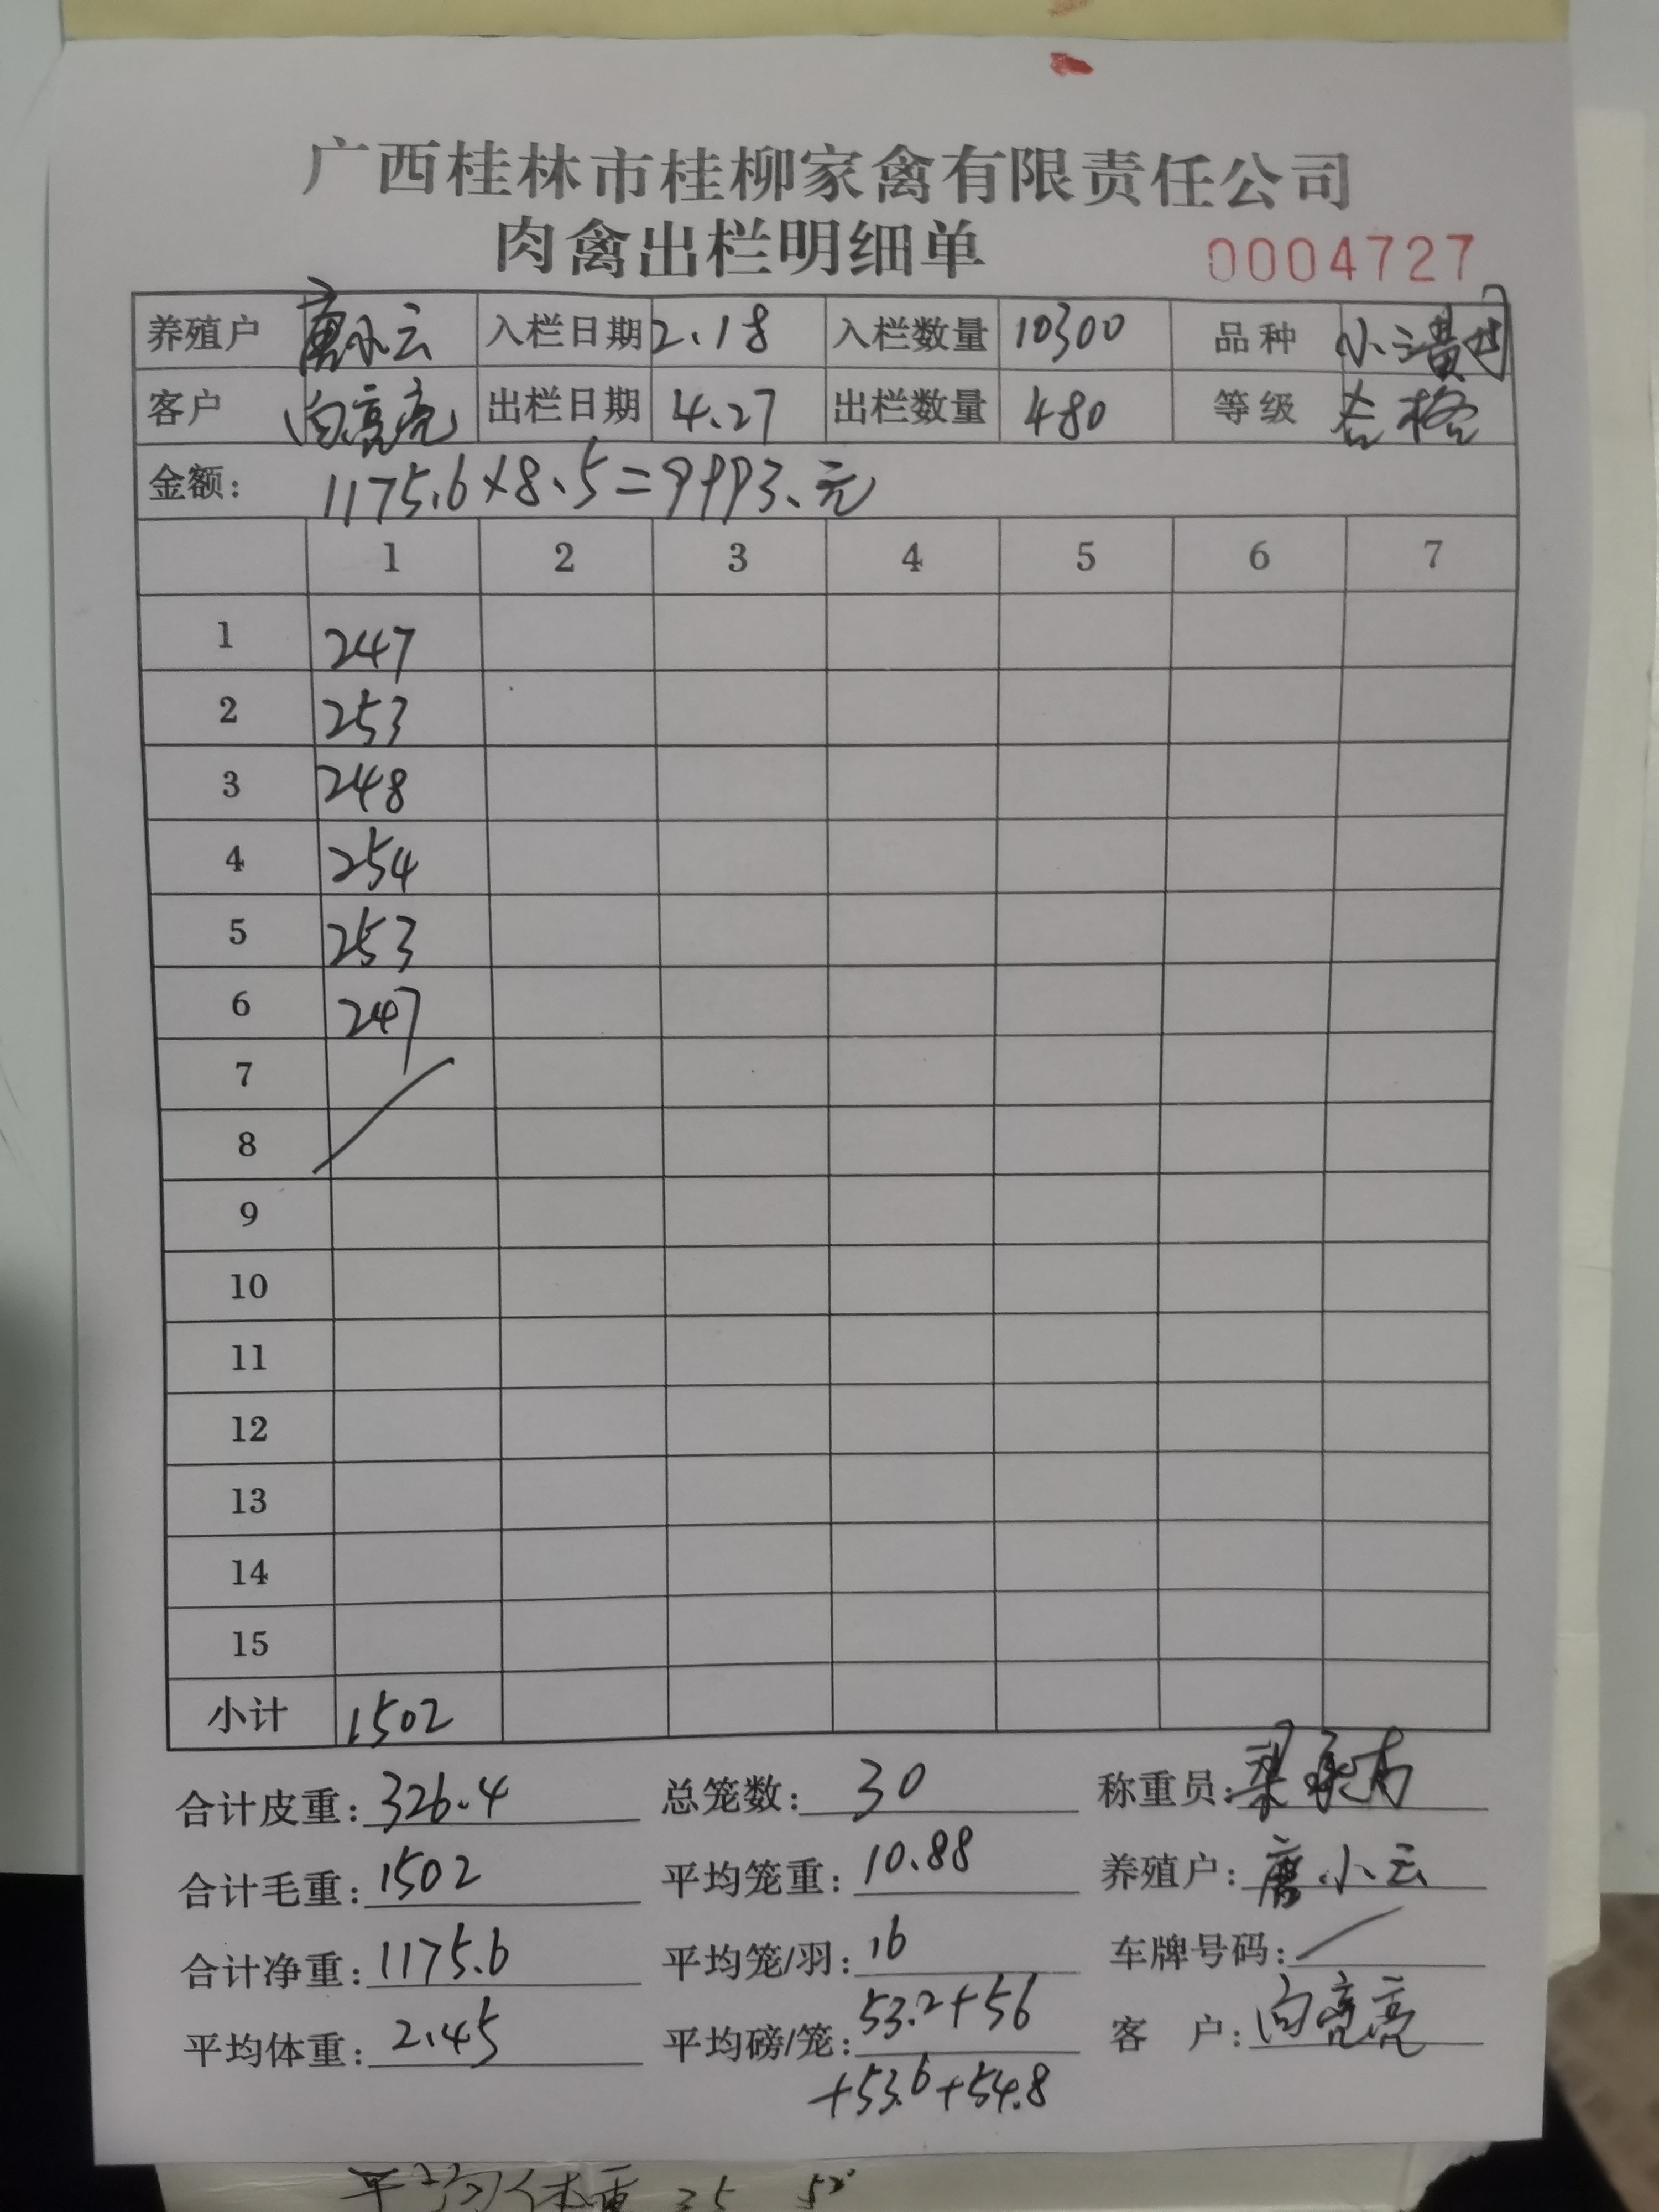 广西桂林市桂柳家禽有限责任公司
肉禽出栏明细单 0004727
养殖户 唐小云 入栏日期 2.18 入栏数量 10300 品种 小三黄
客户 向亮亮 出栏日期 4.27 出栏数量 480 等级 合格
金额: 1175.6×8.5=9993.元
1 2 3 4 5 6 7
1 247
2 253
3 248
4 254
5 253
6 247
7
8
9
10
11
12
13
14
15
小计 1502
合计皮重: 326.4 总笼数: 30 称重员:
合计毛重: 1502 平均笼重: 10.88 养殖户: 唐小云
合计净重: 1175.6 平均笼/羽: 16 车牌号码:
平均体重: 2.45 平均磅/笼: 53.2+56 客 户: 向亮亮
+53.6+54.8
平均体重